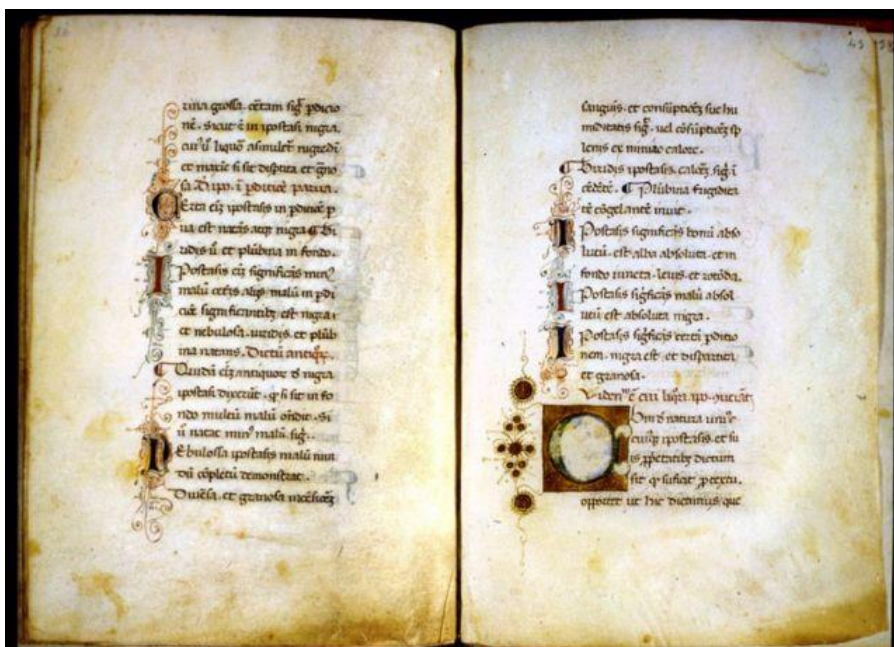 rina grossa. certam sig̅ pdicio
ne̅. Sicut e̅ in ipostasi nigra.
cui u̅ liquo̅ asimulet̅ nigredi̅
et macie si sit dispsita et g̅no
sa. D̅ ipo. i̅ pdicice̅ parua.
Certa eiz ipostasis in pdicice̅ p
ua est natas atqz nigra ¶ Vi
ridis u̅ et plu̅bina in fondo.
Ipostasis eiz significa̅s min9
malu̅ ceteris aliis malu̅ in pdi
cice̅ significantibz est nigra i
et nebulosa. uiridis. et plu̅b
ina natans. Dictu̅ antiqor̅.
¶ Quida̅ eiz antiquor̅ d̅ nigra
ipostasi dixeru̅t. q̅ si sit in fo̅
ndo multu̅ malu̅ o̅ndit. Si
u̅ natat min9 malu̅ sig̅..
Nebulossa ipostasis malu̅ nu̅a
du̅ co̅pletu̅ demonstrat.
Diue̅sa. et granosa
sanguis. et consu̅ptice̅z sue hu
miditatis sig̅. uel co̅su̅ptice̅z sp
lenis ex nimiao calore.
¶ Viridis ipostasis. calce̅z. sig̅. i̅
ce̅de̅te̅. ¶ Plu̅bina frigidita
te̅ co̅gelante̅ inuit.
Ipostasis significa̅s bonu̅ abso
lutu̅. est alba absoluta. et in
fondo iuncta. leuis. et roto̅da.
Ipostasis sig̅fica̅s malu̅ absol
utu̅ est absoluta nigra.
Ipostasis sig̅fica̅s certa̅ pdicio
nem. nigra est. et dispartita
et granosa.
Viden e̅ cui liq̅ra ipo.
Quu̅ d̅ natura uni9c
cuiqz ipostasis. et su
is p̅p̅etatibz dictum
sit q̅ suficit p̅textu.
oportet ut hic dictimus que